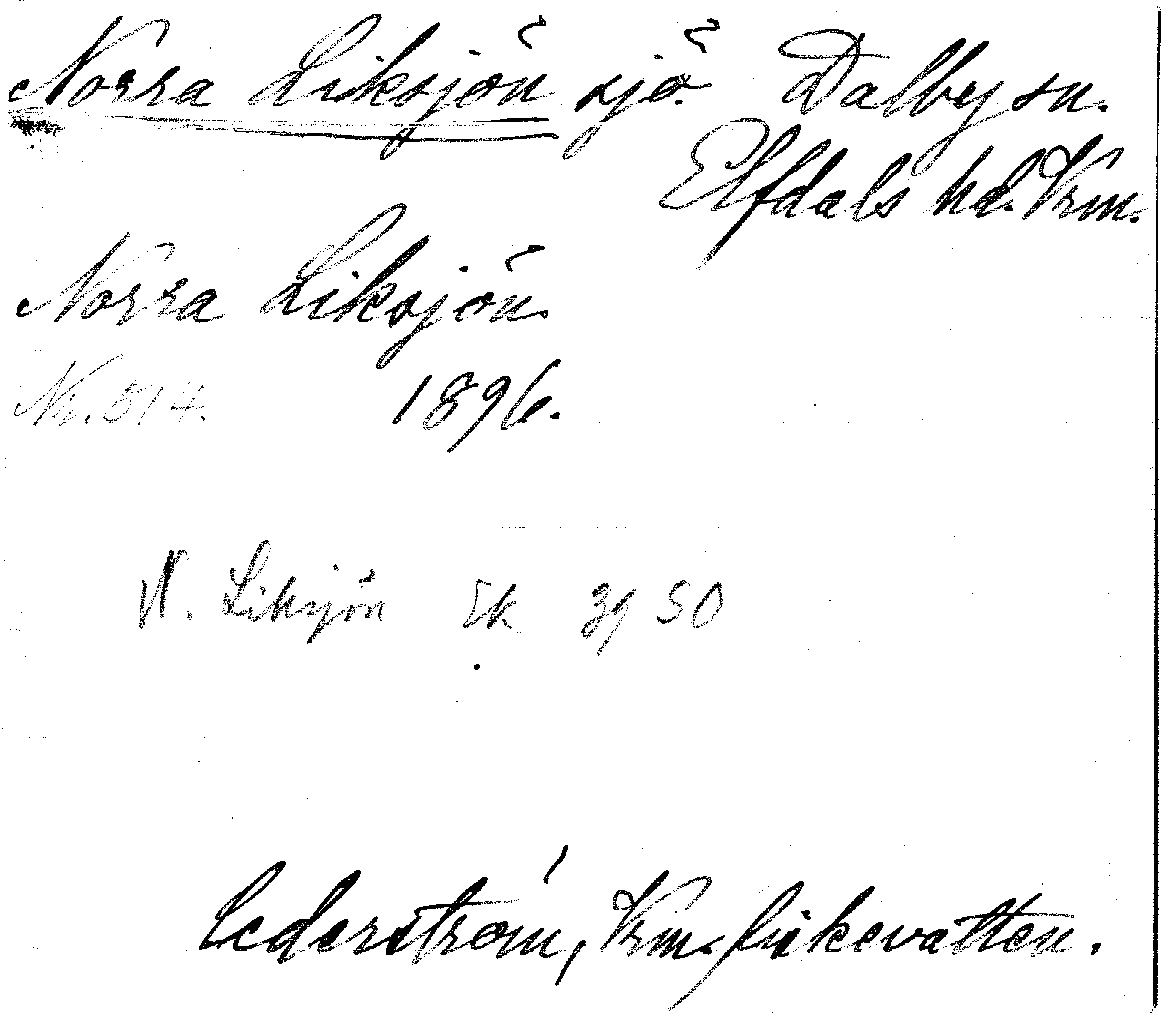 Norra Liksjön sjö. Dalby sn.
Elfdals hd. Vrm.
Norra Liksjön.
Nr. 514. 1896.
N. Liksjön Ek 39 50
Cederström, Vrm. fiskevatten.